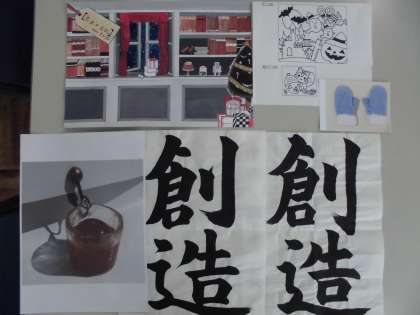 創造
創造